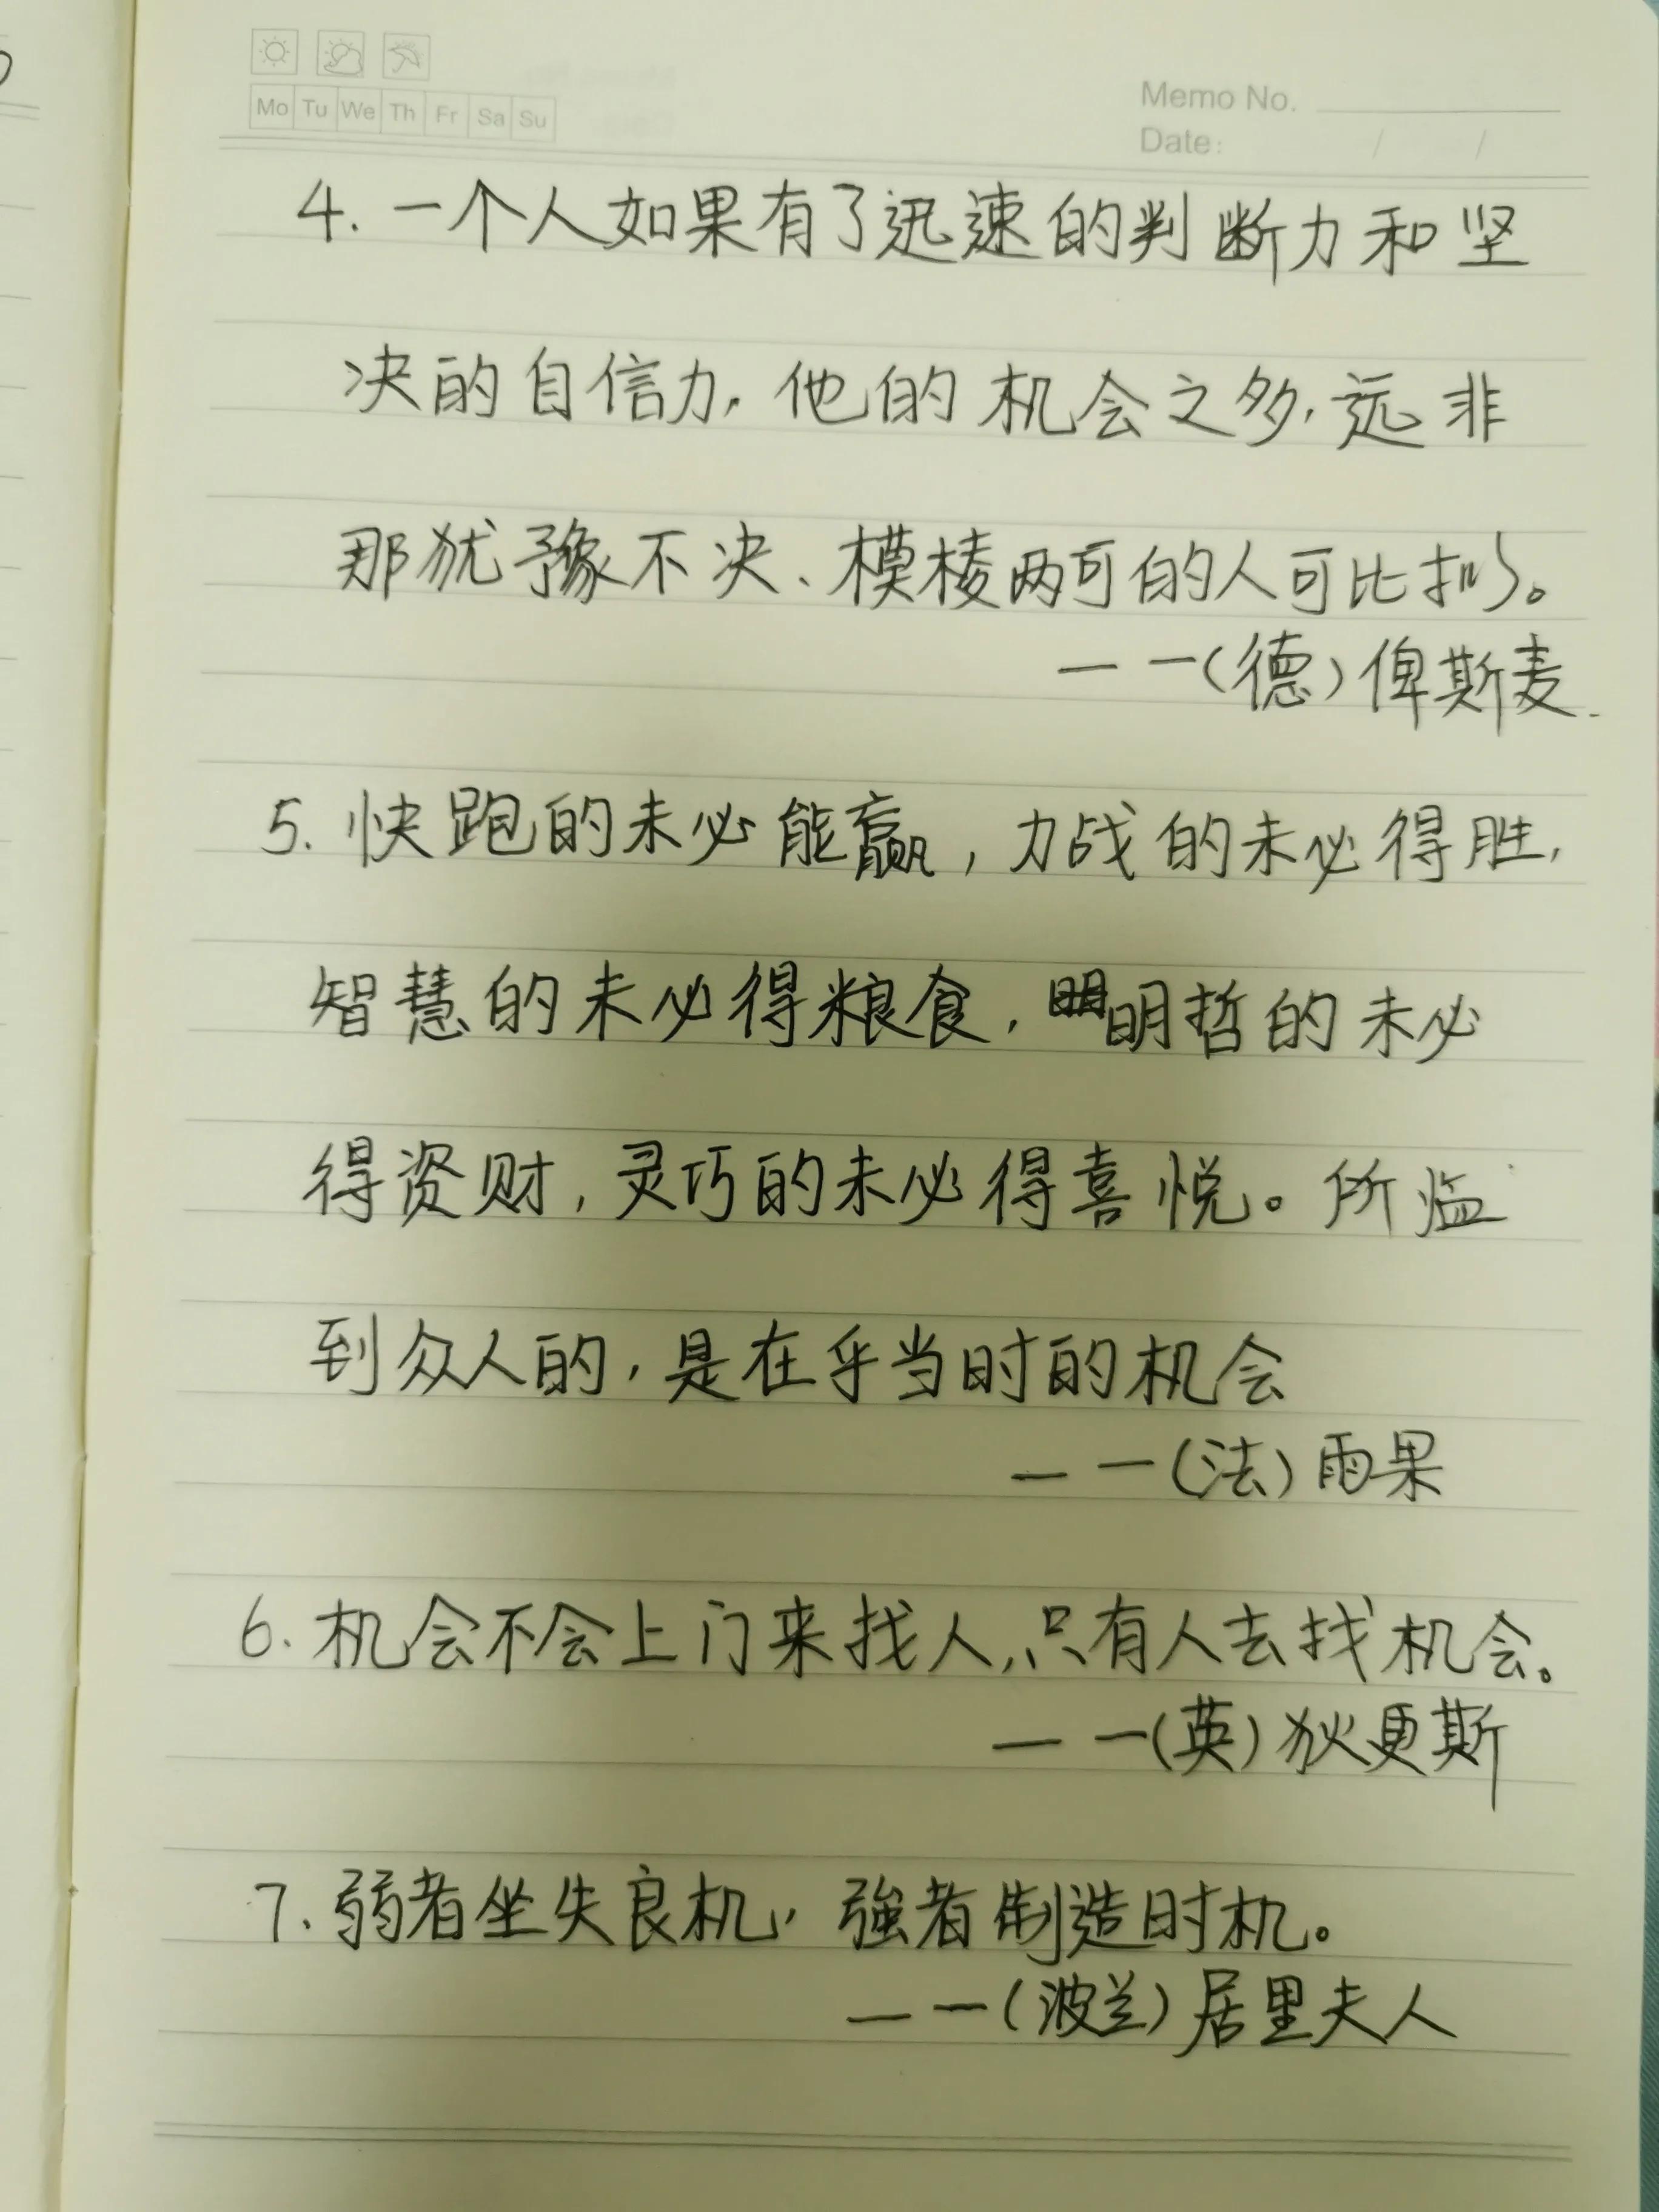 Mo Tu We Th Fr Sa Su
Memo No.
Date: / /
4. 一个人如果有了迅速的判断力和坚
决的自信力, 他的机会之多, 远非
那犹豫不决、模棱两可的人可比拟。
——(德)俾斯麦.
5. 快跑的未必能赢, 力战的未必得胜,
智慧的未必得粮食, 明哲的未必
得资财, 灵巧的未必得喜悦。所临
到众人的, 是在乎当时的机会
——(法)雨果
6. 机会不会上门来找人,只有人去找机会。
——(英)狄更斯
7. 弱者坐失良机, 強者制造时机。
——(波兰)居里夫人